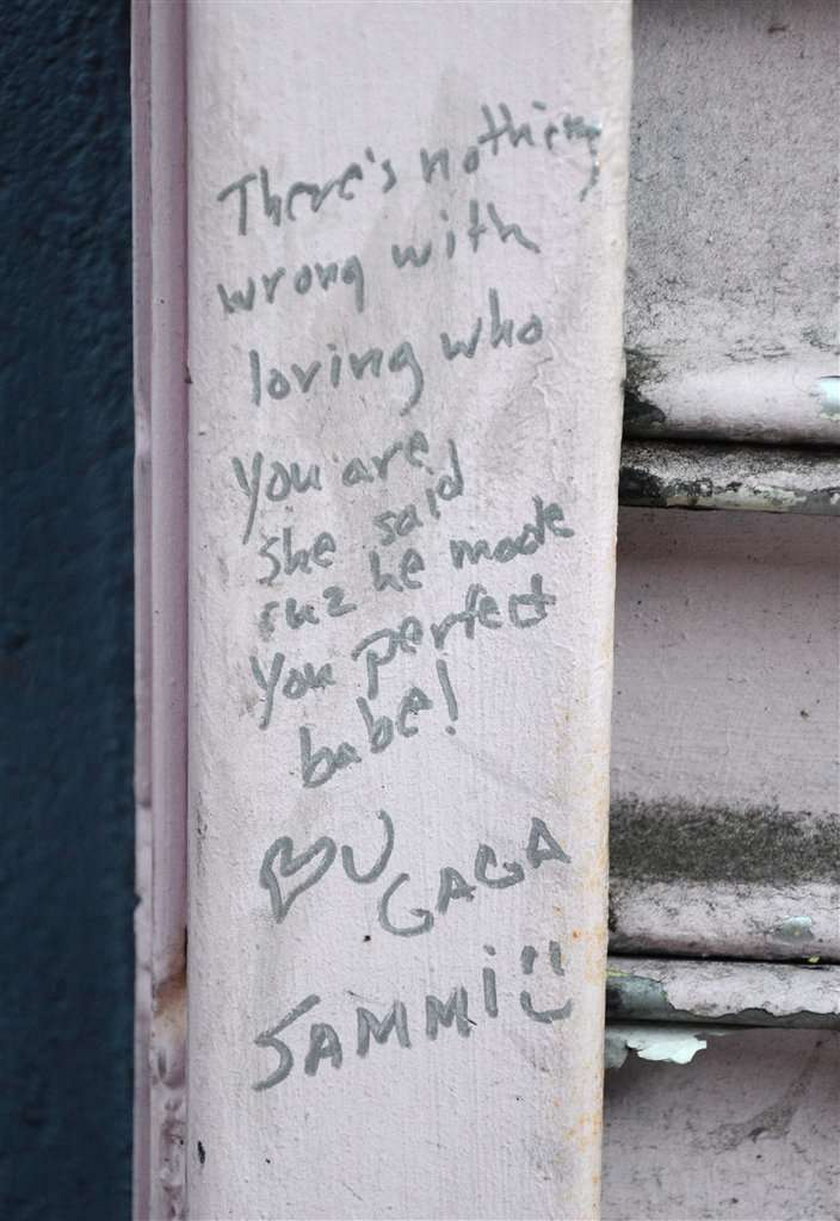 There's nothing
wrong with
loving who
You are
she said
cuz he made
You perfect
babe!
♡U
GAGA
SAMMi